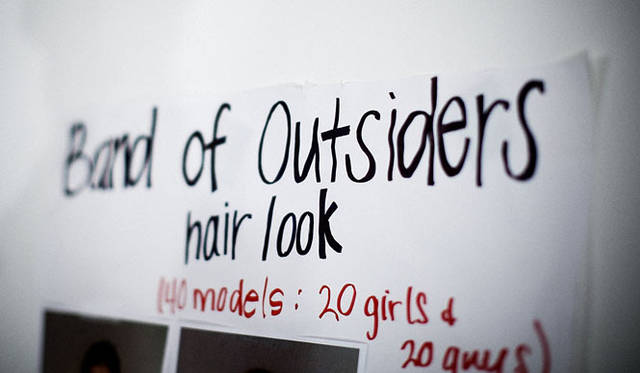 Band of Outsiders
hair look
(40 models: 20 girls &
20 guys)